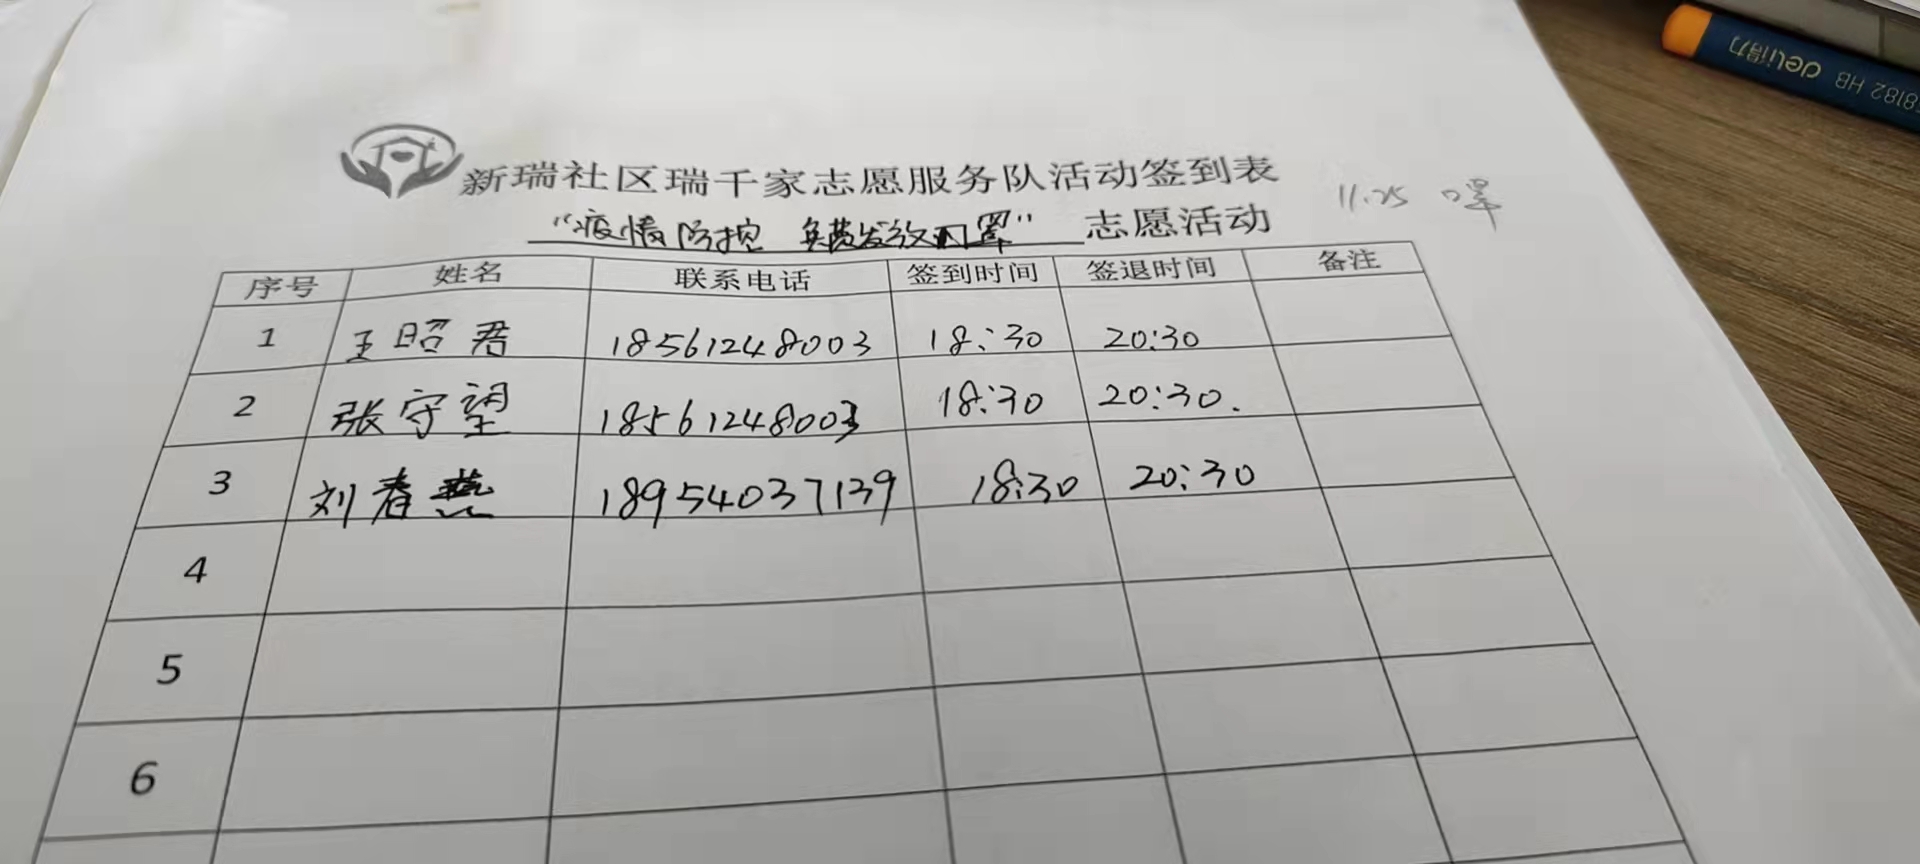 新瑞社区瑞千家志愿服务队活动签到表
11.25 口罩
“疫情防控 免费发放口罩” 志愿活动
序号 姓名 联系电话 签到时间 签退时间 备注
1 王昭君 18561248003 18:30 20:30
2 张守望 18561248003 18:30 20:30.
3 刘春燕 18954037139 18:30 20:30
4
5
6
deli得力 HB 58182